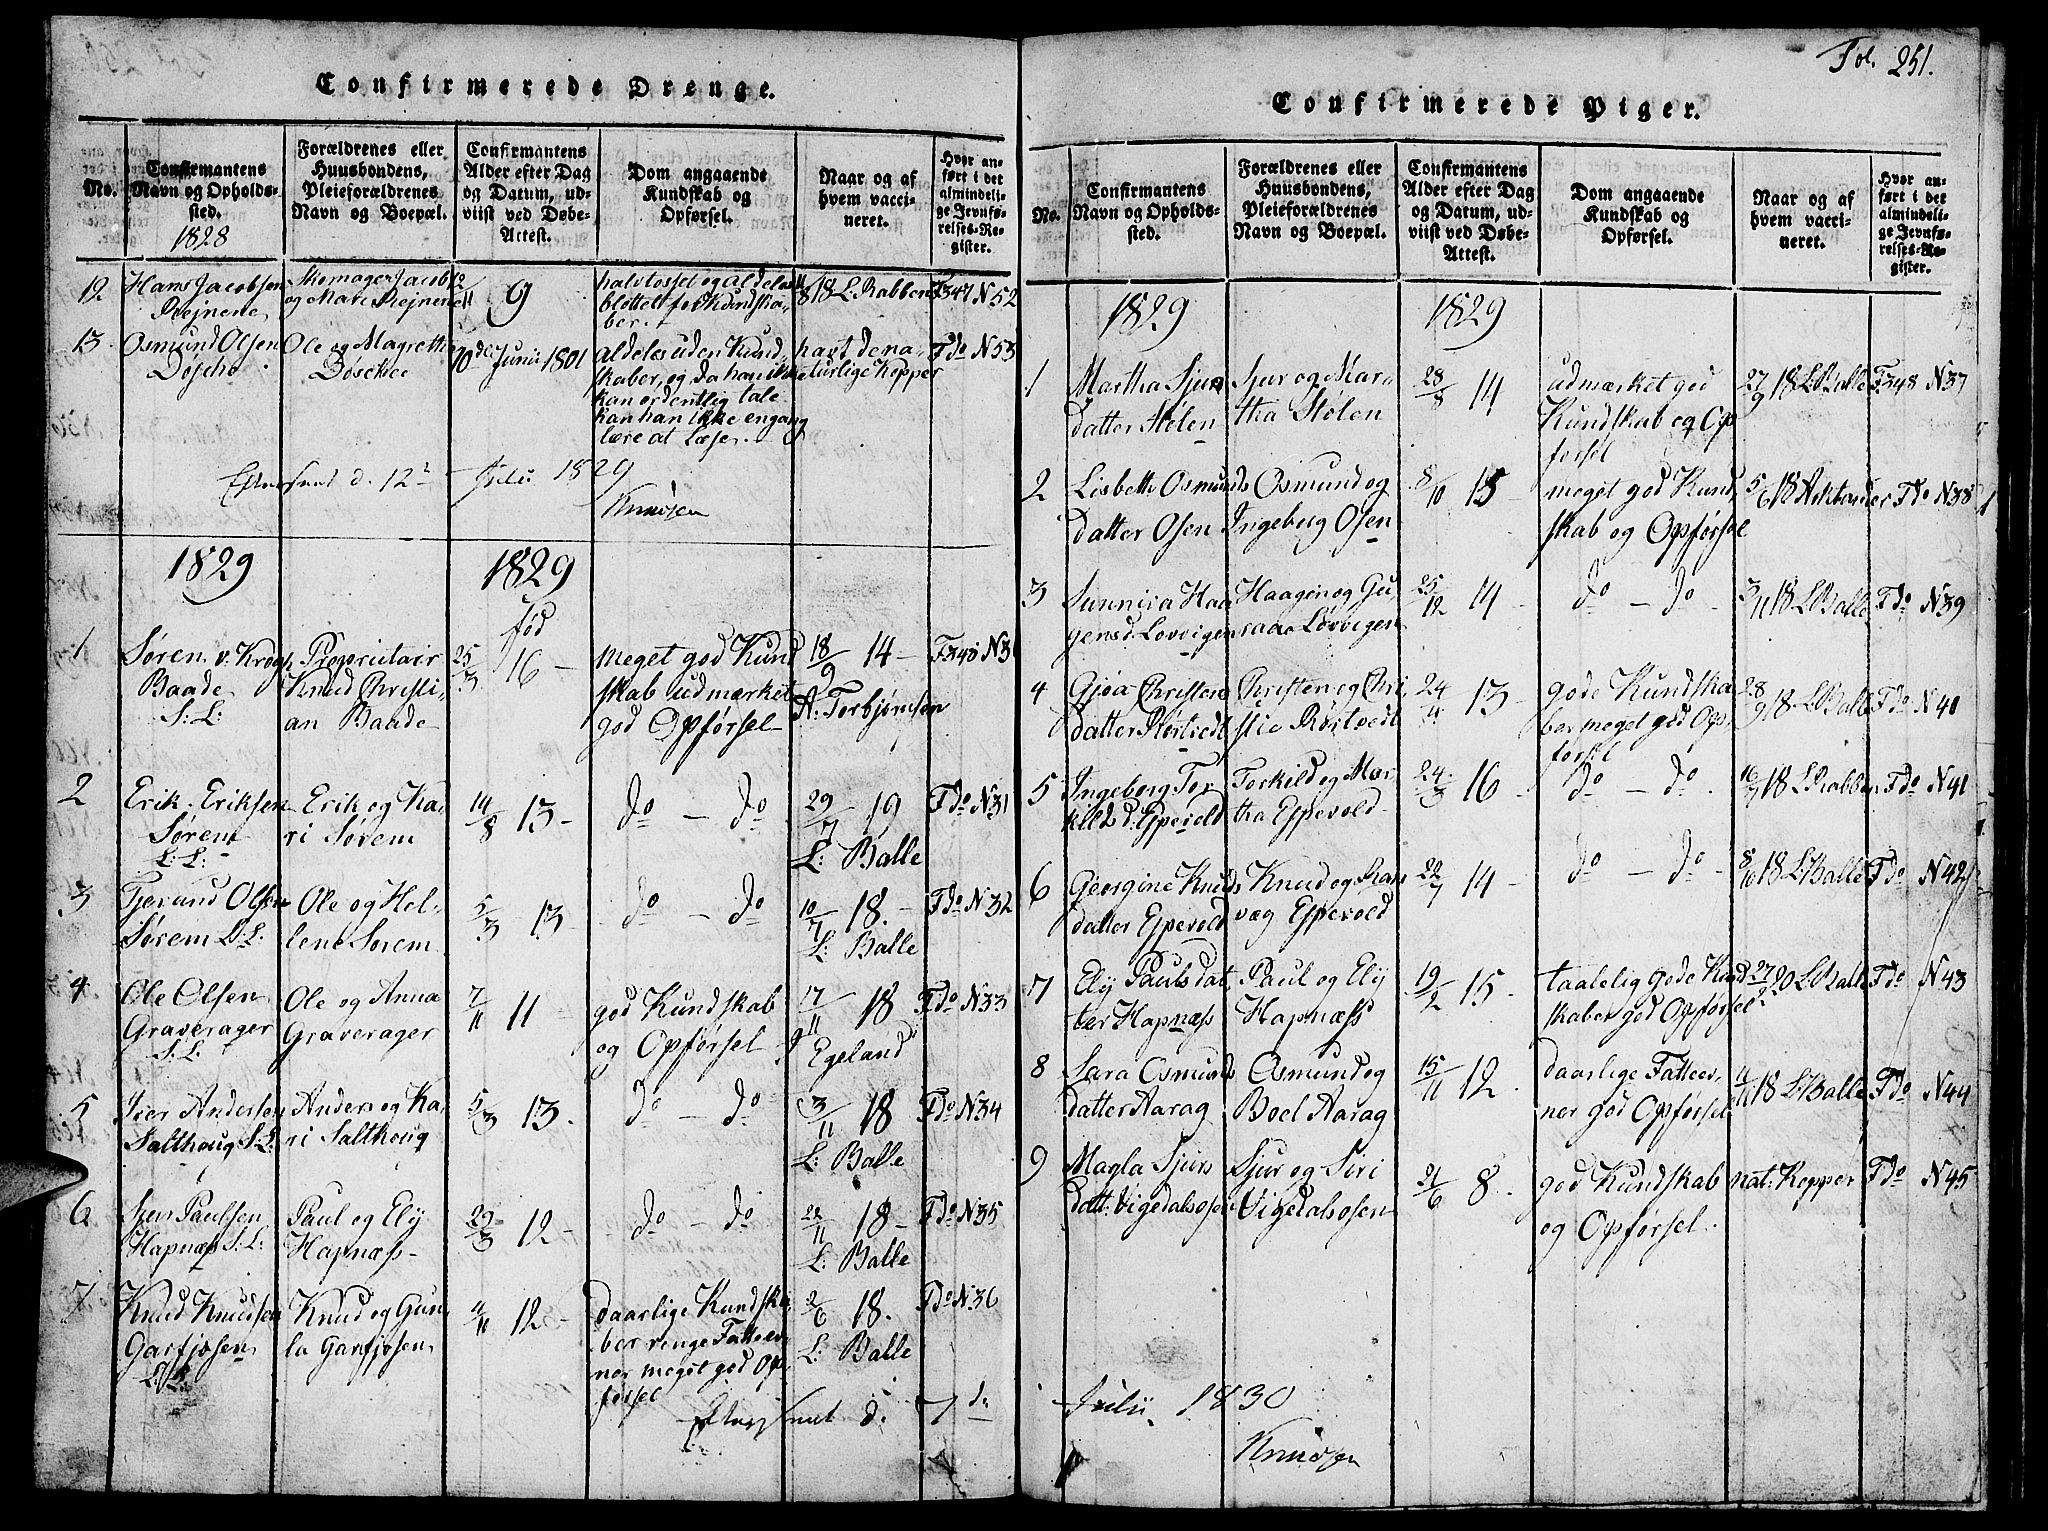 Confirmerede Drenge.
No.
Confirmantens
Navn og Opholds-
sted.
1828
Forældrenes eller
Huusbondens,
Pleieforældrenes
Navn og Boepæl.
Confirmantens
Alder efter Dag
og Datum, ud-
viist ved Døbe-
Attest.
Dom angaaende
Kundskab og
Opførsel.
Naar og af
hvem vacci-
neret.
Hvor an-
ført i det
almindeli-
ge Jevnfø-
relses-Re-
gister.
12 Hans Jacobsen
Rejnene
Skomager Jacob
og Mari Rejnene
12/11 9
halvtosset og aldeles
blottet for Kundska-
ber.
18 L. Rabben
F347 N52
13 Osmund Olsen
Døsche
Ole og Magrethe
Døschee
10de Junii 1801
aldeles uden Kund-
skaber, og da han ikke
kan ordentlig tale
kan han ikke engang
lære at læse.
havt de na-
turlige Kopper
F do N53
Efterseet d. 12 Julii 1829
Knudsen
1829
1829
fød
1 Søren v. Krogh
Baade
S: L:
Proprietair
Knud Christi-
an Baade
25/3 16 -
meget god Kund
skab udmærket
god Opførsel
18/9 14 -
A: Torbjørnsen
F348 N30
2 Erik Eriksen
Sørem
L: L:
Erik og Ka-
ri Sørem
14/8 13 -
do - do
29/7 19
L: Balle
F do N31
3 Tjerand Olsen
Sørem L: L:
Ole og Hel-
lene Sørem
5/3 13
do - do
10/7 18. -
L: Balle
F do N32
4 Ole Olsen
Graverager
S: L:
Ole og Anna
Graverager
7/11 11
god Kundskab
og Opførsel
17/11 18
Egeland
F do N33
5 Iver Andersen
Salthoug S: L:
Anders og Ka-
ri Salthoug
5/3 13.
do - do
3/11 18
L: Balle
F do N34
6 Sjen Paulsen
Hapnæs S: L:
Paul og Elj
Hapnæss -
29/3 12 -
do - do
22/11 18 -
L: Balle
F do N35
7 Knud Knudsen
Garfjosen
L: L:
Knud og Gun-
la Garfjosen
4/11 12 -
daarlige Kundska
ber ringe Fattev-
ner meget god Op-
førsel
2/6 18.
L: Balle
F do N36
Efterseet d. 7 de
Fol. 251.
Confirmerede Piger.
No.
Confirmantens
Navn og Opholds-
sted.
Forældrenes eller
Huusbondens,
Pleieforældrenes
Navn og Boepæl.
Confirmantens
Alder efter Dag
og Datum, ud-
viist ved Døbe-
Attest.
Dom angaaende
Kundskab og
Opførsel.
Naar og af
hvem vacci-
neret.
Hvor an-
ført i det
almindeli-
ge Jevnfø-
relses-Re-
gister.
1829
1829
1 Martha Sjur
datter Stølen
Sjur og Mar-
tha Stølen
28/8 14
udmærket god
Kundskab og Op
førsel
27/9 18 L Balle
F348 N37
2 Lisbeth Osmunds
datter Osen
Osmund og
Ingeborg Osen
8/10 15 -
meget god Kund
skab og Opførsel
F do N38
3 Sunniva Haa
gensd Lovvigen
Haagen og Gu
raa Lovvigen
25/12 14 -
do - do -
3/11 18 L Balle
F do N39
4 Gjøa Christen
datter Rørtvedt
Christen og Chri-
stie Rørtvedt
24/4 13
gode Kundska
ber meget god Op-
førsel
28/9 18 L Balle
F do N40
5 Ingeborg Tor
kilds d: Espevold
Torkild og Mar
tha Espevold
24/3 16
do - do
18 L Rabben
F do N41
6 Georgine Knuds
datter Espevold
Knud og Ran
væg Espevold
22/7 14 -
do - do -
8/10 18 L Balle
F do N42
7 Elj Paulsdat
ter Hapnæss
Paul og Elj
Hapnæss
19/2 15 -
taalelig gode Kund
skaber god Opførsel
27/2 20 L Balle
F do N43
8 Sara Osmunds
datter Aarag
Osmund og
Boel Aarag
15/11 12
daarlige Fatteev-
ner god Opførsel
4/11 18 L: Balle
F do N44
9 Magla Sjurs
datt: Vigedalsosen
Sjur og Siri
Vigedalsosen
21/6 8
god Kundskab
og Opførsel.
nat: Kopper
F do N45
Julii 1830
Knudsen